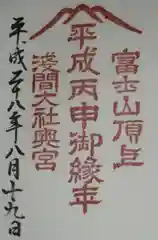 富士山頂上
平成丙申御縁年
浅間大社奥宮
平成二十八年八月十九日